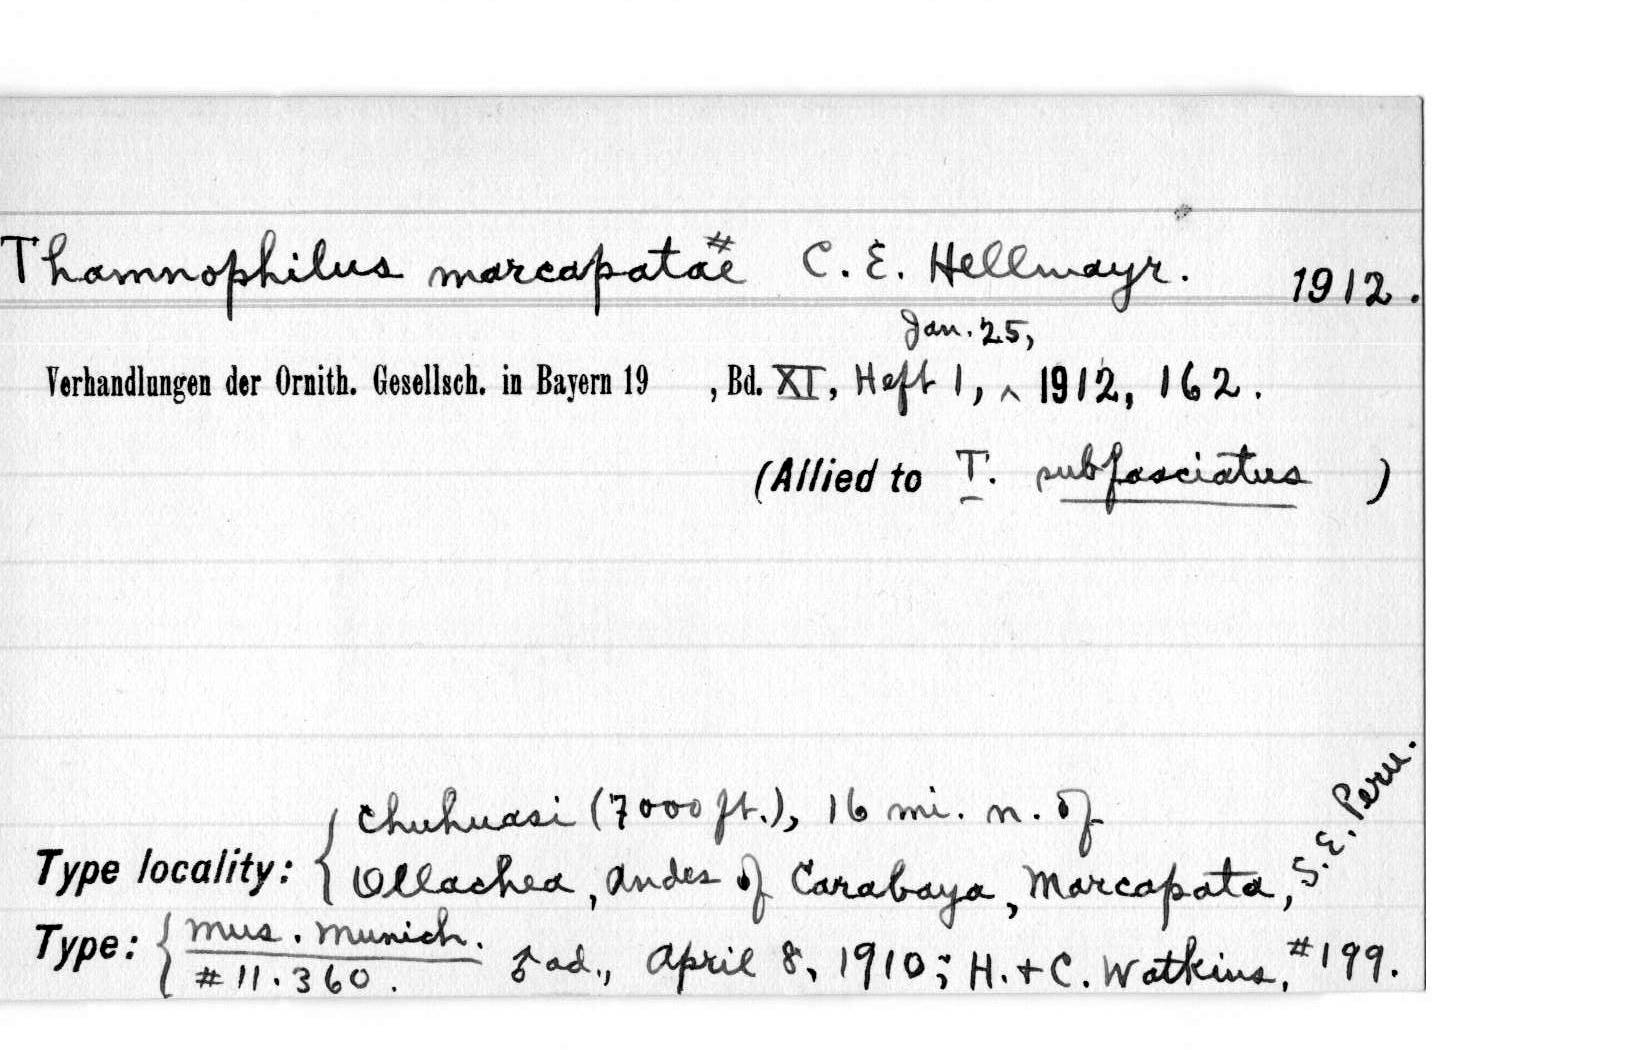 Thamnophilus marcapatae# C. E. Hellmayr. 1912.
Jan. 25,
Verhandlungen der Ornith. Gesellsch. in Bayern 19 , Bd. XI, Heft 1, ^ 1912, 162.
(Allied to T. subfasciatus )
Chuhuasi (7000 ft.), 16 mi. n. of
Type locality: { Ollachea, Andes of Carabaya, Marcapata, S.E. Peru.
Type: { Mus. Munich. ♂ ad., April 8, 1910; H. + C. Watkins, #199.
#11.360.